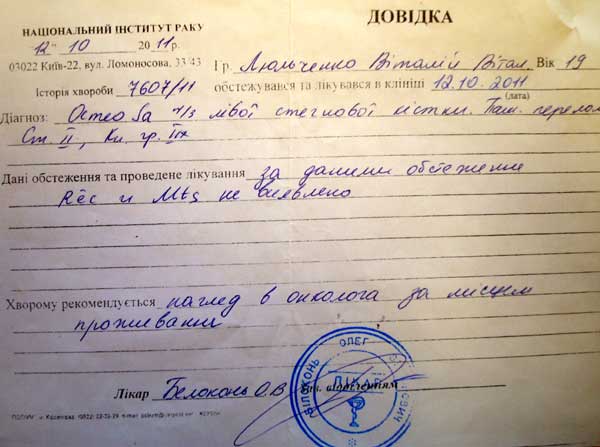 НАЦІОНАЛЬНИЙ ІНСТИТУТ РАКУ
ДОВІДКА
12" 10 2011 р.
03022 Київ-22, вул. Ломоносова, 33/43
Гр. Люльченко Віталій Вітал. Вік 19
Історія хвороби 7607/11
обстежувався та лікувався в клініці 12.10.2011
(дата)
Діагноз: Остео Sa н/з лівої стегнової кістки. Пат. перелом
Ст. II, Кл. гр.
Дані обстеження та проведене лікування за даними обстеження
Rec и Mts не виявлено
Хворому рекомендується нагляд в онколога за місцем
проживання
Лікар Белоконь О.В. Зав. відділенням
БІЛОКОНЬ ОЛЕГ
ЛІКАР